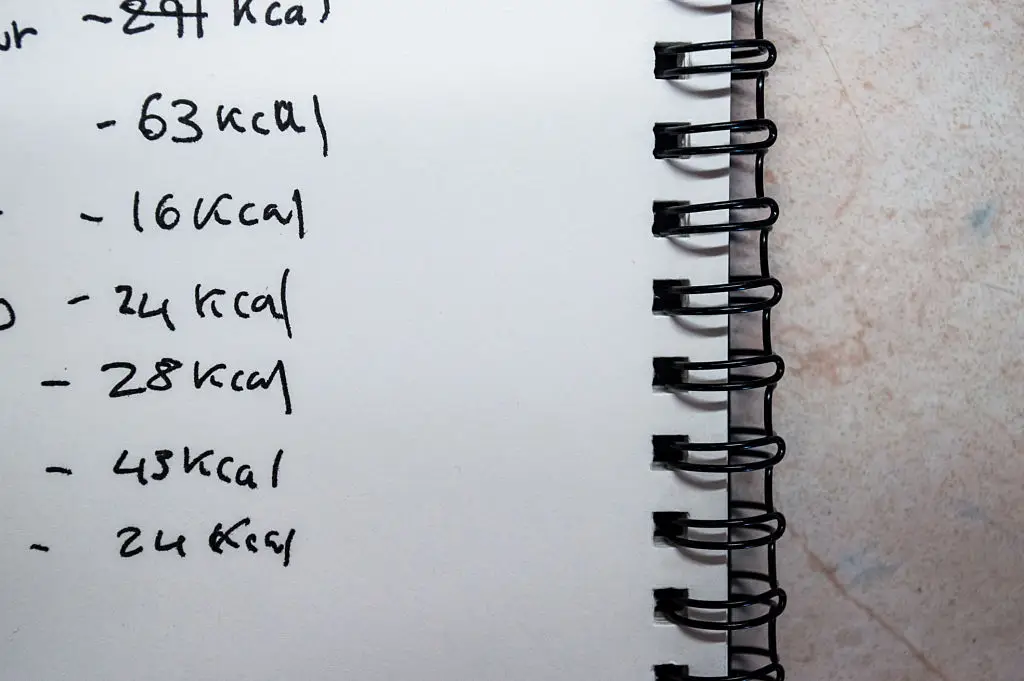 - 291 Kcal
- 63 Kcal
- 16 Kcal
- 24 Kcal
- 28 Kcal
- 43 Kcal
- 24 Kcal